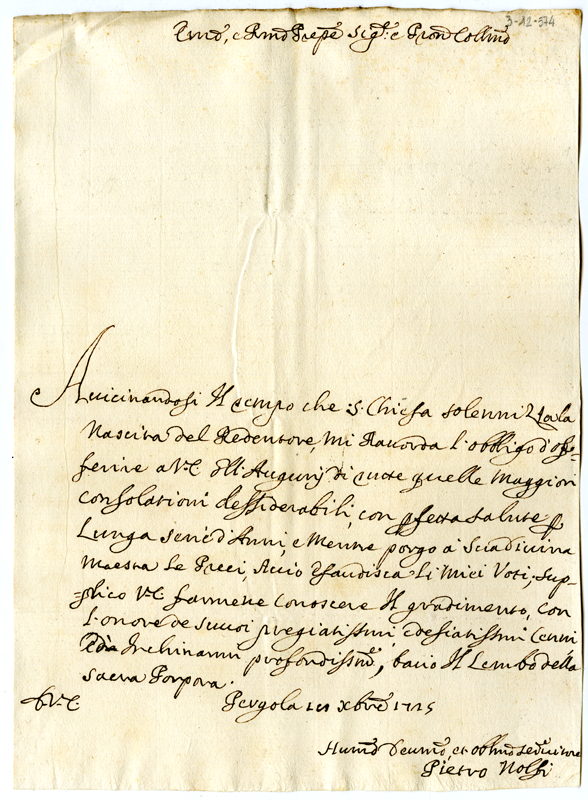 3-12-574
Emo, e Rmo Prñpe Sigr e Pron Collmo
Avicinandosi Il tempo che S. Chiesa solenniza la
Nascita del Redentore, mi Racorda l'obbligo d'offe-
ferire a V.E. gli Augurij di tutte quelle Maggiori
Consolationi dessiderabili, con pfetta salute p
Lunga serie d'Anni, e Mentre porgo à Sua divina
Maestà Le Preci, Acio Esaudisca Li Miei Voti, sup-
=plico V.E. farmene Conoscere Il gradimento, con
L'onore de suoi pregiatissimi, e desiatissimi Cenni
Ed Inchinanmi profondissimẽ, bacio Il Lembo della
sacra Porpora.
D V.E. Pergola xbre 1725
Humo Devmo, et obbmo Servitore
Pietro Nolfi